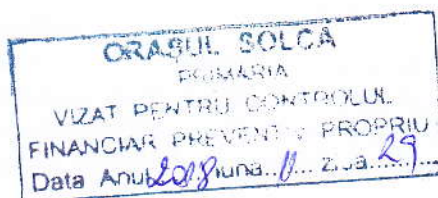 ORAȘUL SOLCA
PRIMĂRIA
VIZAT PENTRU CONTROLUL
FINANCIAR PREVENTIV PROPRIU
Data Anul 2018 luna..11... ziua..29...